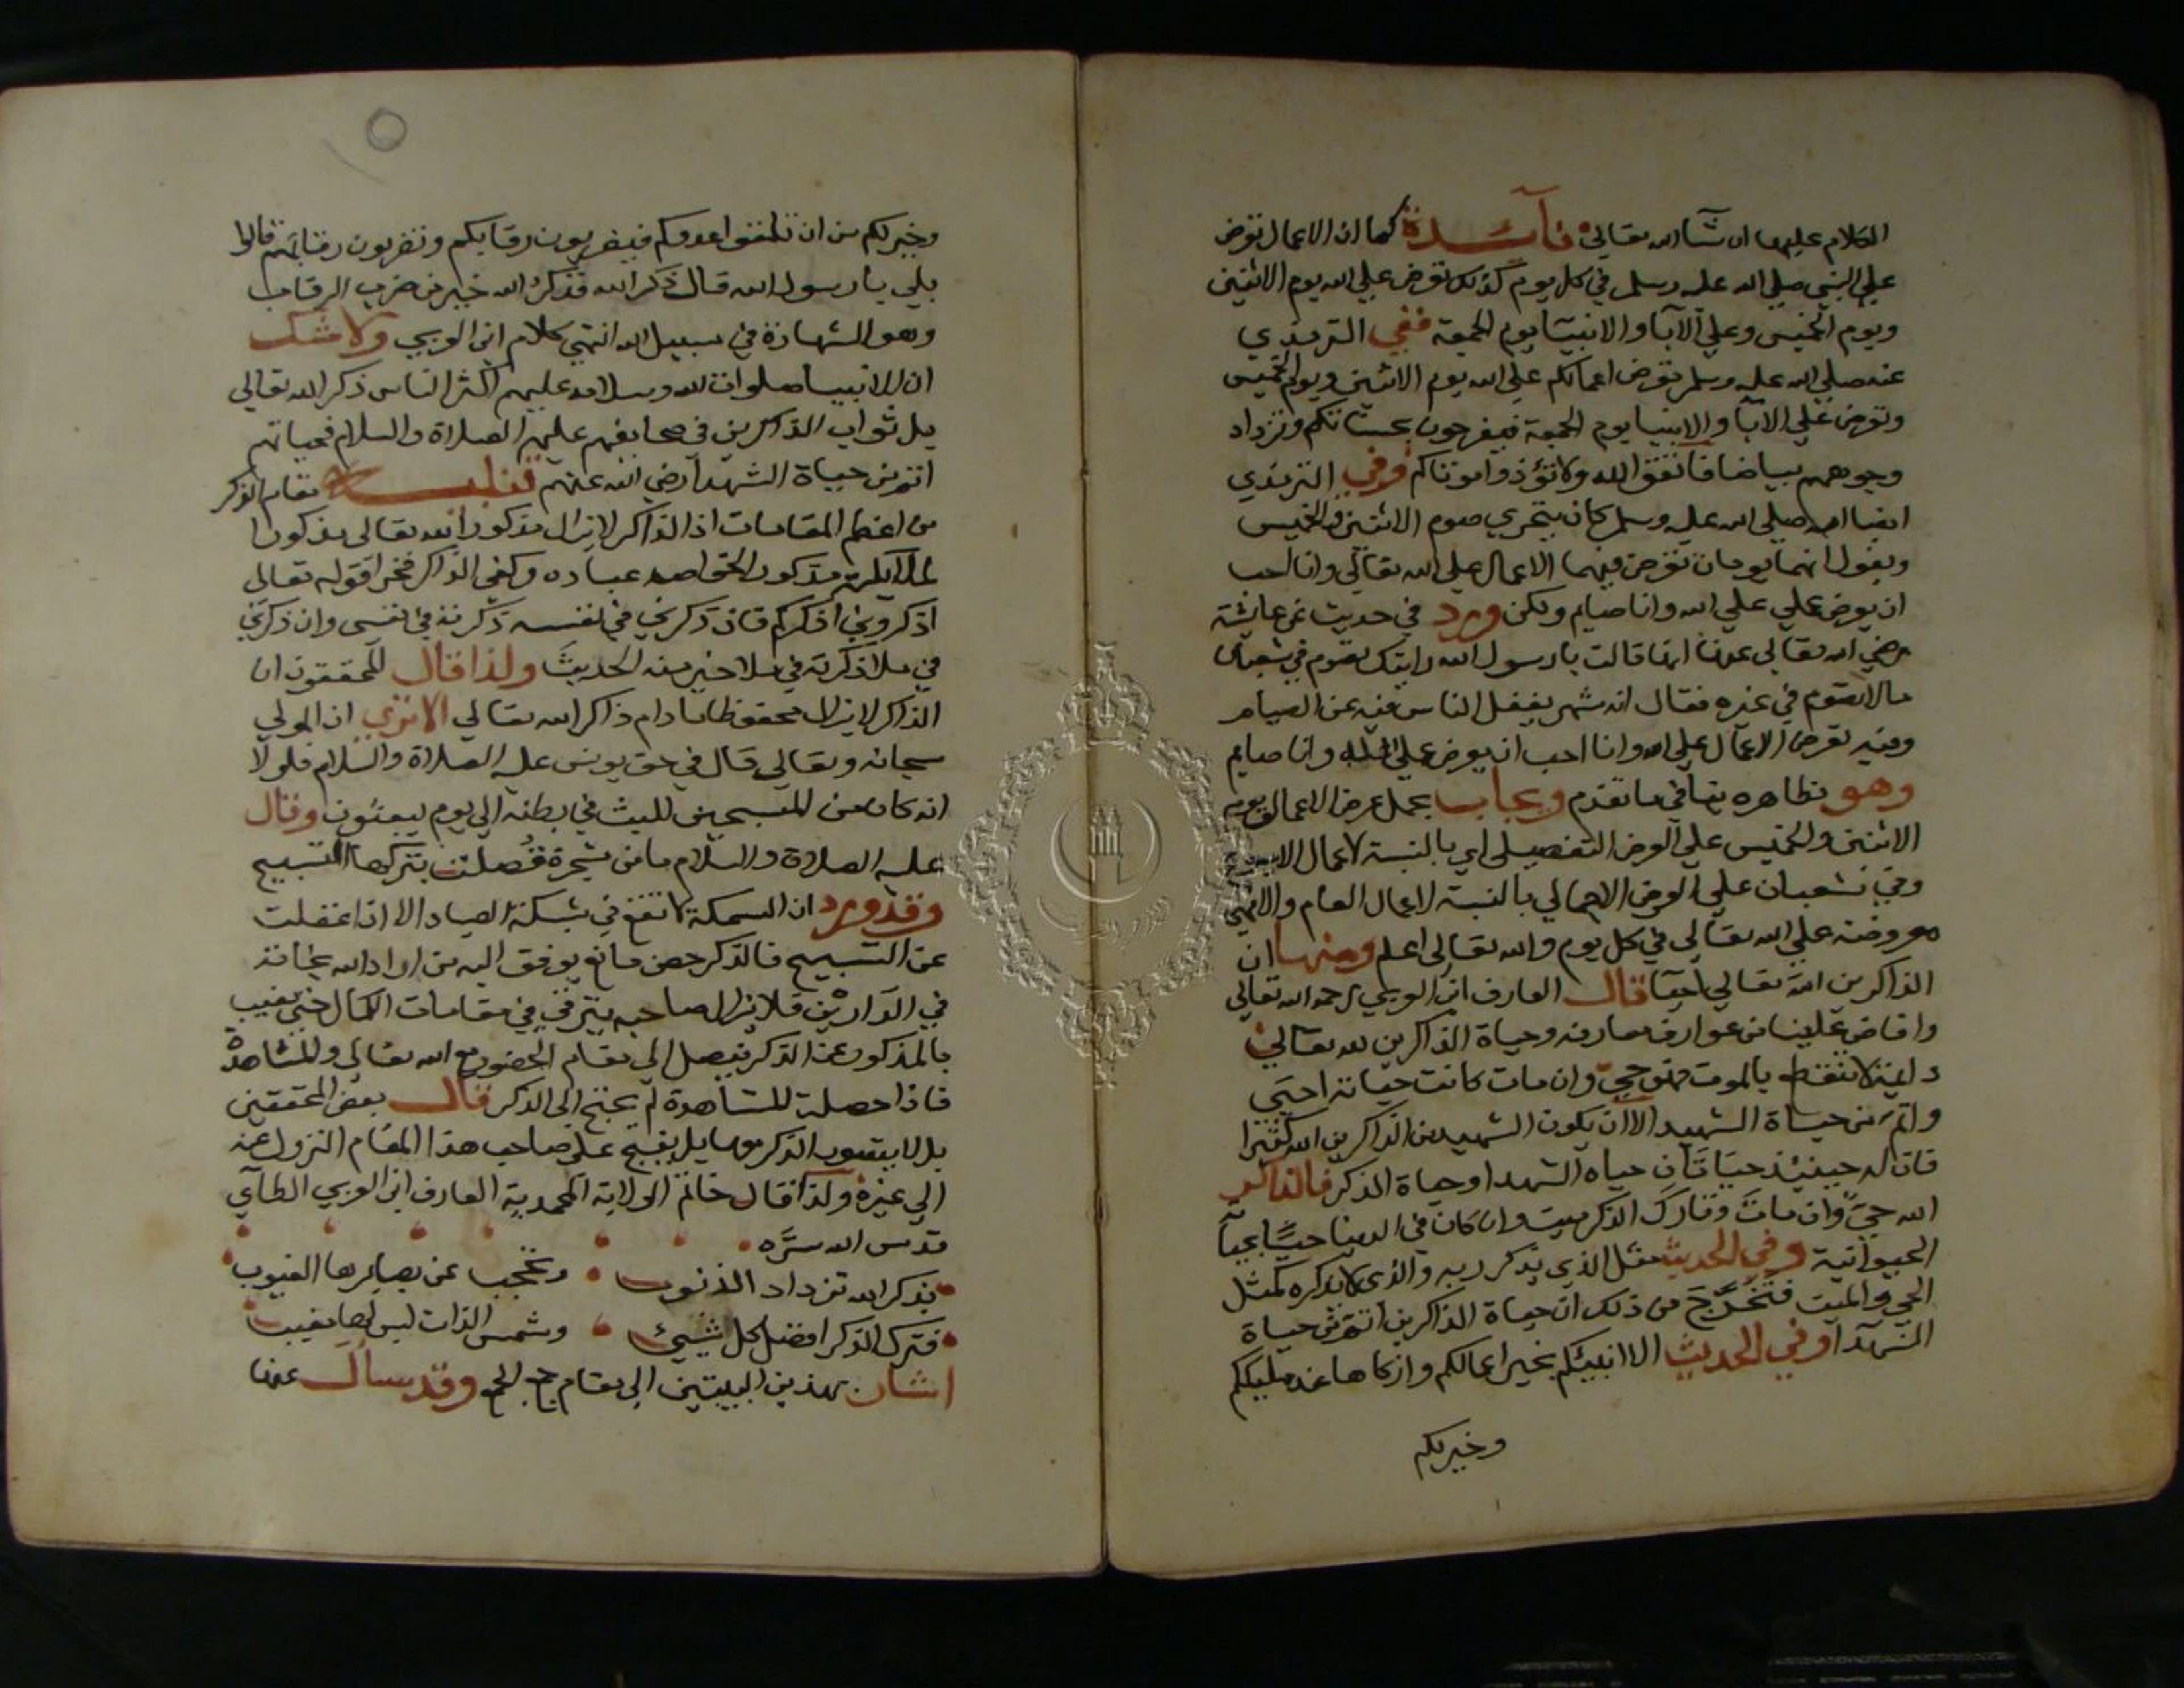 الكلام عليها ان شآء الله تعالي فآئدة كما ان الاعمال تعرض
علي النبي صلي الله عليه وسلم في كل يوم كذلك تعرض علي الله يوم الاثنين
ويوم الخميس وعلي الآبا والانبيآ يوم الجمعة ففي الترمذي
عنه صلي الله عليه وسلم تعرض اعمالكم علي الله يوم الاثنين ويوم الخميس
وتعرض علي الابآ والانبيا يوم الجمعة فيفرحون بحسناتكم وتزداد
وجوههم بياضا فاتقوا الله ولا تؤذوا موتاكم وفي الترمذي
ايضا انه صلي الله عليه وسلم كان يتحري صوم الاثنين والخميس
ويقول انهما يومان تعرض فيهما الاعمال علي الله تعالي وانا احب
ان يعرض عملي علي الله وانا صايم ولكن ورد في حديث عن عائشة
رضي الله تعالي عنها انها قالت يا رسول الله رايتك تصوم في شعبان
مالا تصوم في غيره فقال انه شهر يغفل الناس فيه عن الصيام
وفيه تعرض الاعمال علي الله وانا احب ان يعرض عملي وانا صايم
وهو بظاهره ينافي ما تقدم ويجاب بحمل عرض الاعمال يوم
الاثنين والخميس علي العرض التفصيلي اي بالنسبة لاعمال الاسبوع
وفي شعبان علي العرض الاجمالي بالنسبة لاعمال العام والا فهي
معروضة علي الله تعالي في كل يوم والله تعالي اعلم ومنها ان
الذاكرين الله تعالي احيآ قال العارف ابن العربي رحمه الله تعالي
وافاض علينا من عوارف معارفه وحياة الذاكرين لله تعالي
دايمة لا تنقطع بالموت فهو حي وان مات كانت حياته احيي
واتم من حياة الشهيد الا ان يكون الشهيد من الذاكرين الله كثيرا
فان له حينئذ حياتان حياه الشهدا وحياة الذكر فالذاكر
الله حيٌّ وان مات وتارك الذكر ميت وان كان في الدنيا حيًّا بحياة
الحيوانية وفي الحديث مثل الذي يذكر ربه والذي لا يذكره كمثل
الحي والميت فتخرّج من ذلك ان حياة الذاكرين اتم من حياة
الشهدآ وفي الحديث الا انبيئكم بخير اعمالكم وازكاها عند مليككم
وخير لكم
وخير لكم من ان تلقوا عدوكم فيضربون رقابكم وتضربون رقابهم قالوا
بلي يا رسول الله قال ذكر الله فذكر الله خير من ضرب الرقاب
وهو الشهادة في سبيل الله انتهي كلام ابن العربي ولا شك
ان الانبيا صلوات الله وسلامه عليهم اكثر الناس ذكر الله تعالي
بل ثواب الذاكرين في صحايفهم عليهم الصلاة والسلام فحياتهم
اتم من حياة الشهدآ رضي الله عنهم تنبيه مقام الذكر
من اعظم المقامات اذ الذاكر لا يزال مذكور الله تعالي مذكورا
مذكور الخواص عباده وكفي الذاكر فخرا قوله تعالي
اذكروني اذكركم فان ذكرني في نفسه ذكرته في نفسي وان ذكرني
في ملأ ذكرته في ملا خير منه الحديث ولذا قال المحققون ان
الذاكر لا يزال محفوظا ما دام ذاكر الله تعالي الا تري ان المولي
سبحانه وتعالي قال في حق يونس عليه الصلاة والسلام فلولا
انه كان من المسبحين للبث في بطنه الي يوم يبعثون وقال
عليه الصلاة والسلام ما من شجرة فُصلت بتركها التسبيح
وقد ورد ان السمكة لا تقع في شبكة الصياد الا ان اغفلت
عن التسبيح فالذكر حصن مانع يوفق اليه من اراد الله نجاته
في الدارين فلا يزال صاحبه يترقي في مقامات الكمال حتي يغيب
بالمذكور عن الذكر فيصل الي مقام الحضور مع الله تعالي والمشاهدة
فاذا حصلت المشاهدة لم يحتج الي الذكر قال بعض المحققين
بل لا يتصور الذكر معها بل يقبح علي صاحب هذا المقام النزول عنه
الي غيره ولذا قال خاتم الولاية المحمدية العارف ابن العربي الطآي
قدس الله سرّه
بذكر الله تزداد الذنوب وتحتجب عن بصايرها الغيوب
فترك الذكر افضل كل شيئ وشمس الذات ليس لها مغيب
اشار بهذين البيتين الي مقام جمع الجمع وقد سال عنها